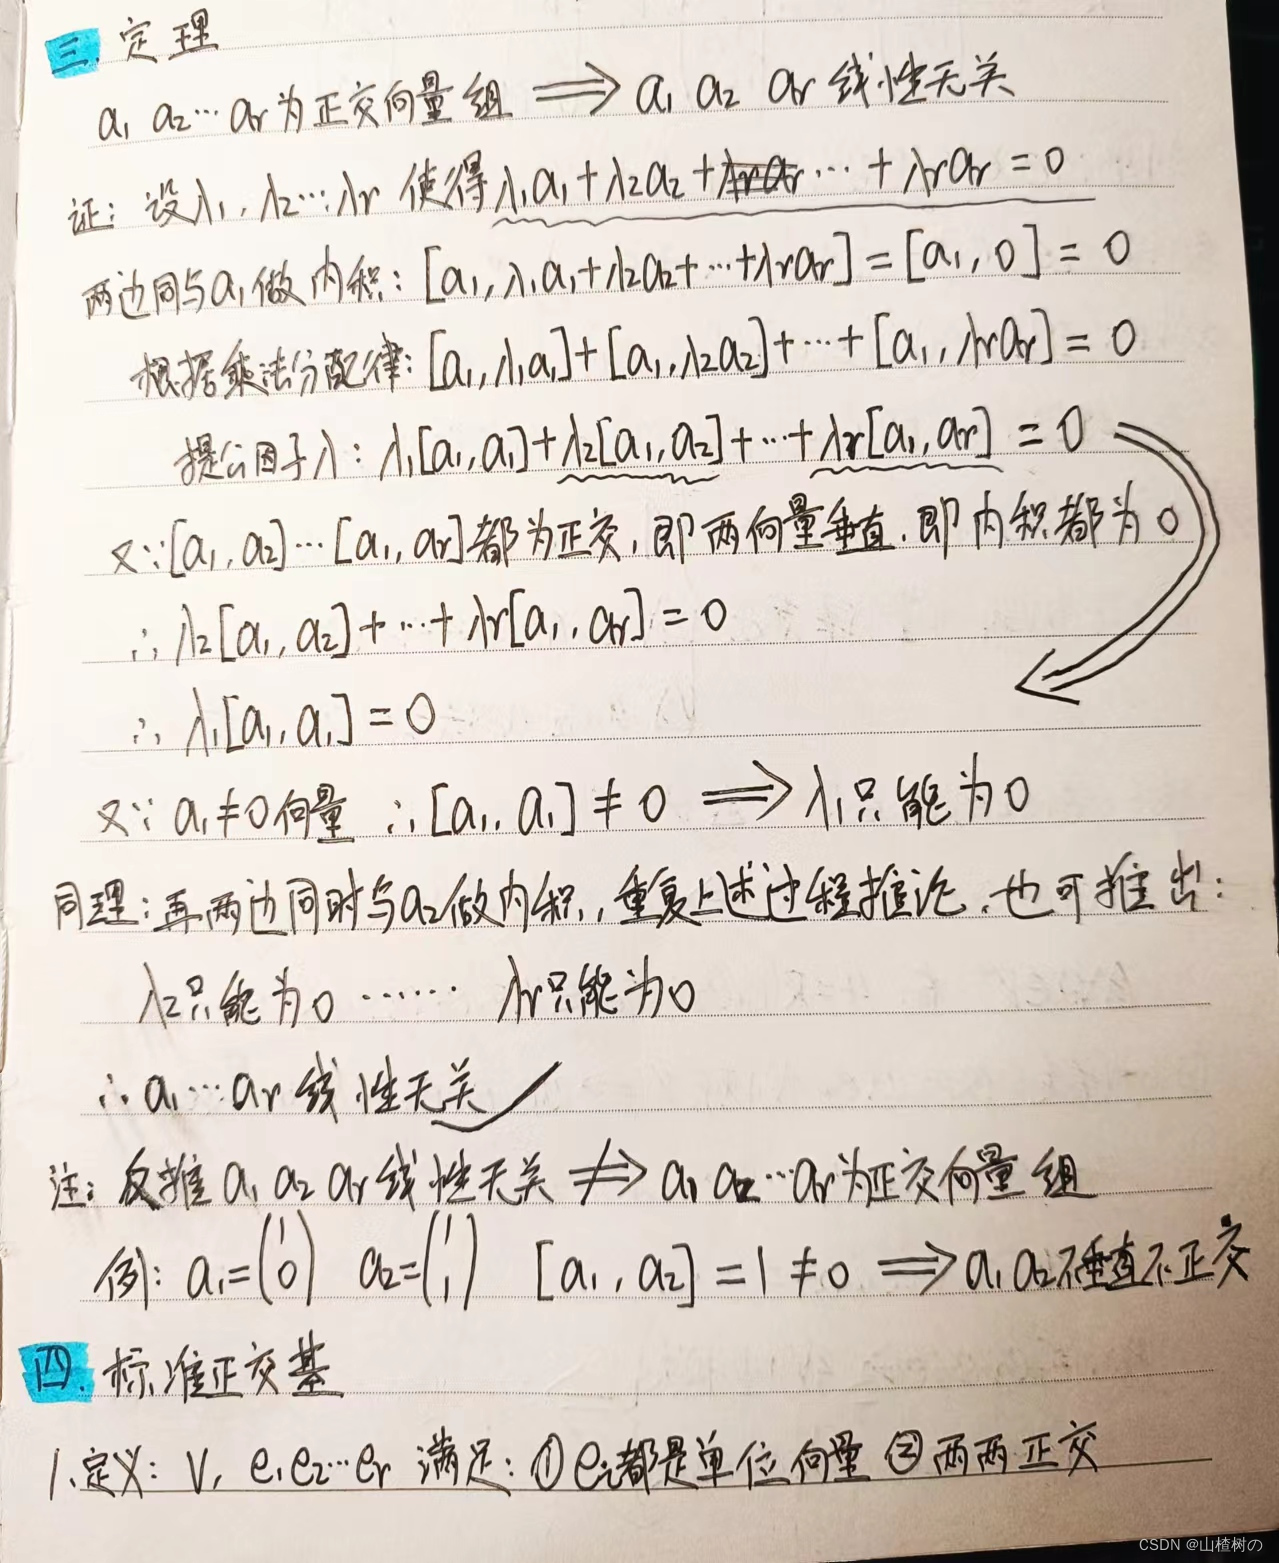 三. 定理
a₁ a₂⋯ aᵣ为正交向量组 ⟹ a₁ a₂ aᵣ 线性无关
证: 设λ₁, λ₂⋯, λᵣ 使得λ₁a₁+λ₂a₂+⋯+λᵣaᵣ=0
两边同与a₁做内积: [a₁, λ₁a₁+λ₂a₂+⋯+λᵣaᵣ]=[a₁, 0]=0
根据乘法分配律: [a₁, λ₁a₁]+[a₁, λ₂a₂]+⋯+[a₁, λᵣaᵣ]=0
提公因子λ: λ₁[a₁, a₁]+λ₂[a₁, a₂]+⋯+λᵣ[a₁, aᵣ]=0
又∵[a₁, a₂]⋯[a₁, aᵣ]都为正交, 即两向量垂直, 即内积都为0
∴ λ₂[a₁, a₂]+⋯+λᵣ[a₁, aᵣ]=0
∴ λ₁[a₁, a₁]=0
又∵ a₁≠0向量 ∴[a₁, a₁]≠0 ⟹ λ₁只能为0
同理: 再两边同时与a₂做内积, 重复上述过程推论, 也可推出:
λ₂只能为0 ⋯⋯ λᵣ只能为0
∴ a₁⋯aᵣ 线性无关
注: 反推 a₁ a₂ aᵣ 线性无关 ⇏ a₁ a₂⋯aᵣ为正交向量组
例: a₁=(1 0) a₂=(1 1) [a₁, a₂]=1≠0 ⟹ a₁ a₂不垂直不正交
四. 标准正交基
1.定义: V, e₁e₂⋯eᵣ 满足: ①eᵢ都是单位向量 ②两两正交
CSDN @山楂树の